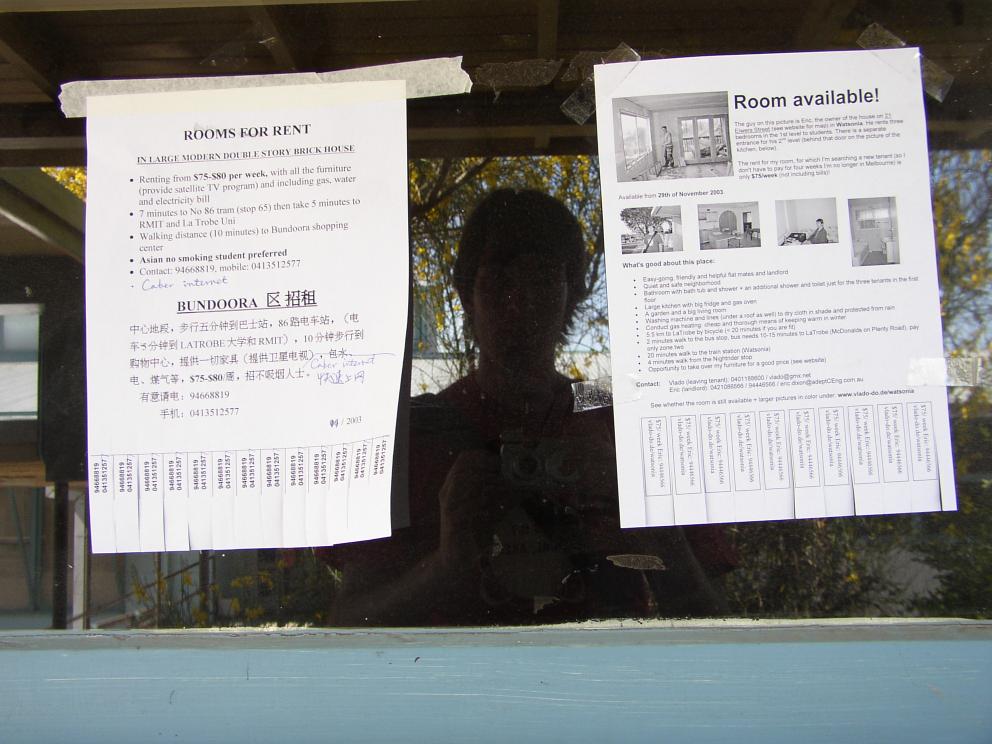 ROOMS FOR RENT
IN LARGE MODERN DOUBLE STORY BRICK HOUSE
• Renting from $75-$80 per week, with all the furniture
(provide satellite TV program) and including gas, water
and electricity bill
• 7 minutes to No 86 tram (stop 65) then take 5 minutes to
RMIT and La Trobe Uni
• Walking distance (10 minutes) to Bundoora shopping
center
• Asian no smoking student preferred
• Contact: 94668819, mobile: 0413512577
• Caber internet
BUNDOORA 区招租
中心地段，步行五分钟到巴士站，86路电车站，（电
车5分钟到 LATROBE 大学和 RMIT），10分钟步行到
购物中心，提供一切家具（提供卫星电视），包水、
Caber internet
电、煤气等，$75-$80/周，招不吸烟人士。
上网
有意请电：94668819
手机：0413512577
/ 2003
94668819
0413512577
94668819
0413512577
94668819
0413512577
94668819
0413512577
94668819
0413512577
94668819
0413512577
94668819
0413512577
94668819
0413512577
94668819
0413512577
94668819
0413512577
94668819
0413512577
94668819
0413512577
Room available!
The guy on this picture is Eric, the owner of the house on 21
Elwers Street (see website for map) in Watsonia. He rents three
bedrooms in the 1st level to students. There is a separate
entrance for his 2nd level (behind that door on the picture of the
kitchen, below).
The rent for my room, for which I'm searching a new tenant (so I
don't have to pay for four weeks I'm no longer in Melbourne) is
only $75/week (not including bills)!
Available from 29th of November 2003
What's good about this place:
• Easy-going, friendly and helpful flat mates and landlord
• Quiet and safe neighborhood
• Bathroom with bath tub and shower + an additional shower and toilet just for the three tenants in the first
floor
• Large kitchen with big fridge and gas oven
• A garden and a big living room
• Washing machine and lines (under a roof as well) to dry cloth in shade and protected from rain
• Conduct gas heating: cheap and thorough means of keeping warm in winter
• 5.5 km to LaTrobe by bicycle (< 20 minutes if you are fit)
• 2 minutes walk to the bus stop, bus needs 10-15 minutes to LaTrobe (McDonalds on Plenty Road), pay
only zone two
• 20 minutes walk to the train station (Watsonia)
• 4 minutes walk from the Nightrider stop
• Opportunity to take over my furniture for a good price (see website)
Contact: Vlado (leaving tenant): 0401189600 / vlado@gmx.net
Eric (landlord): 0421086566 / 94446566 / eric.dixon@adeptCEng.com.au
See whether the room is still available + larger pictures in color under: www.vlado-do.de/watsonia
$75/ week Eric: 94446566
vlado-do.de/watsonia
$75/ week Eric: 94446566
vlado-do.de/watsonia
$75/ week Eric: 94446566
vlado-do.de/watsonia
$75/ week Eric: 94446566
vlado-do.de/watsonia
$75/ week Eric: 94446566
vlado-do.de/watsonia
$75/ week Eric: 94446566
vlado-do.de/watsonia
$75/ week Eric: 94446566
vlado-do.de/watsonia
$75/ week Eric: 94446566
vlado-do.de/watsonia
$75/ week Eric: 94446566
vlado-do.de/watsonia
$75/ week Eric: 94446566
vlado-do.de/watsonia